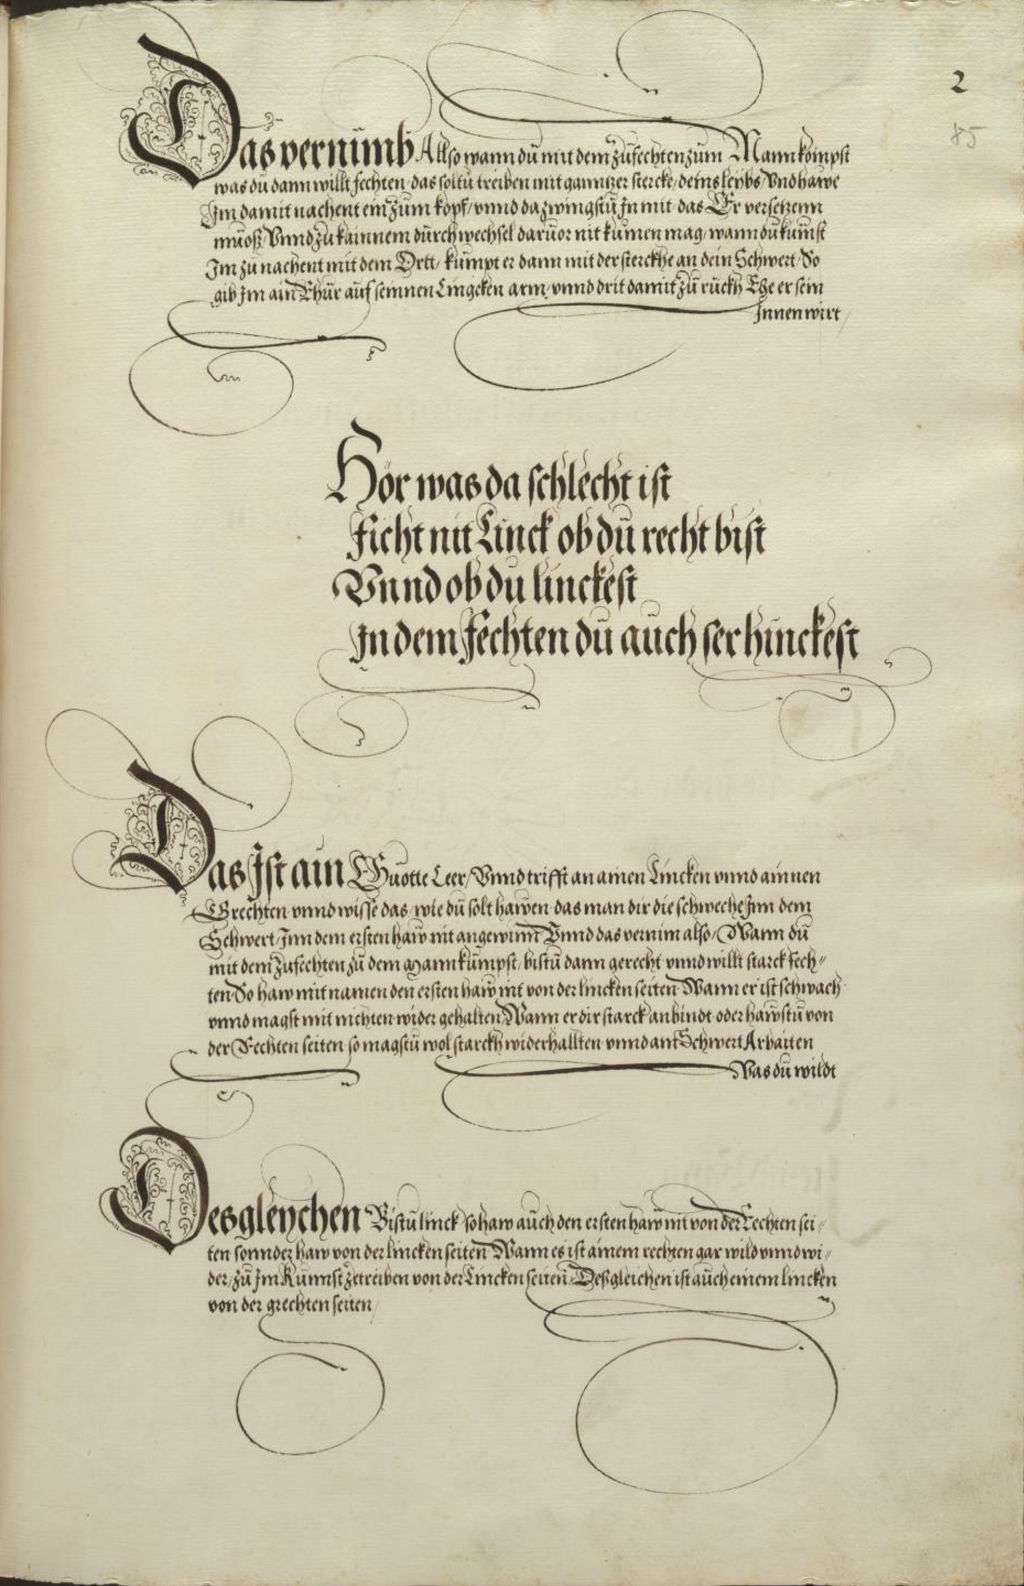 2
85
Das vernimb Allso wann dü mit dem züfechten züm Mann kompst
was dü dann willt fechten / das soltü treiben mit ganntzer stercke / deins leybs / Vnd hawe
Im damit nachent ein züm kopf / vnnd da zwingstü In mit / das Er versetzenn
müoß / Vnnd zü kainnem dürchwechsel darüor nit kümen mag / wann dü kümst
Im zü nachent mit dem Ortt / kümpt er dann mit der sterckhe an dein Schwert / So
gib Im ain Rhür aüf seinnen Lingcken arm / vnnd drit damit zü rückh Ehe er sein
Innen wirt /
Hör was da schlecht ist
Ficht nit Linck ob dü recht bist
Vnnd ob du linckest
In dem Fechten dü aüch ser hinckest
Das Ist ain Guotte Leer / Vnnd trifft an ainen Lincken vnnd ainnen
Grechten vnnd wisse das / wie dü solt hawen das man dir die schweche Inn dem
Schwert / Inn dem ersten haw nit angewinn Vnnd das vernim also / Wann dü
mit dem züfechten zü dem Mann kümpst / bistü dann gerecht vnnd willt starck fech=
ten So haw mit namen den ersten haw nit von der lincken seiten Wann er ist schwach
vnnd magst mit nichten wider gehalten Wann er dir starck anbindt oder hawstü von
der Rechten seiten so magstü wol starckh widerhallten vnnd am Schwert Arbaiten
Was dü wildt
Desgleychen Bistü linck so haw aüch den ersten haw nit von der Rechten sei=
ten sonnder haw von der lincken seiten Wann es ist ainem rechten gar wild vnnd wi=
der / zü Im Kunnst zetreiben von der Lincken seiten / Deßgleichen ist aüch einem lincken
von der grechten seiten /